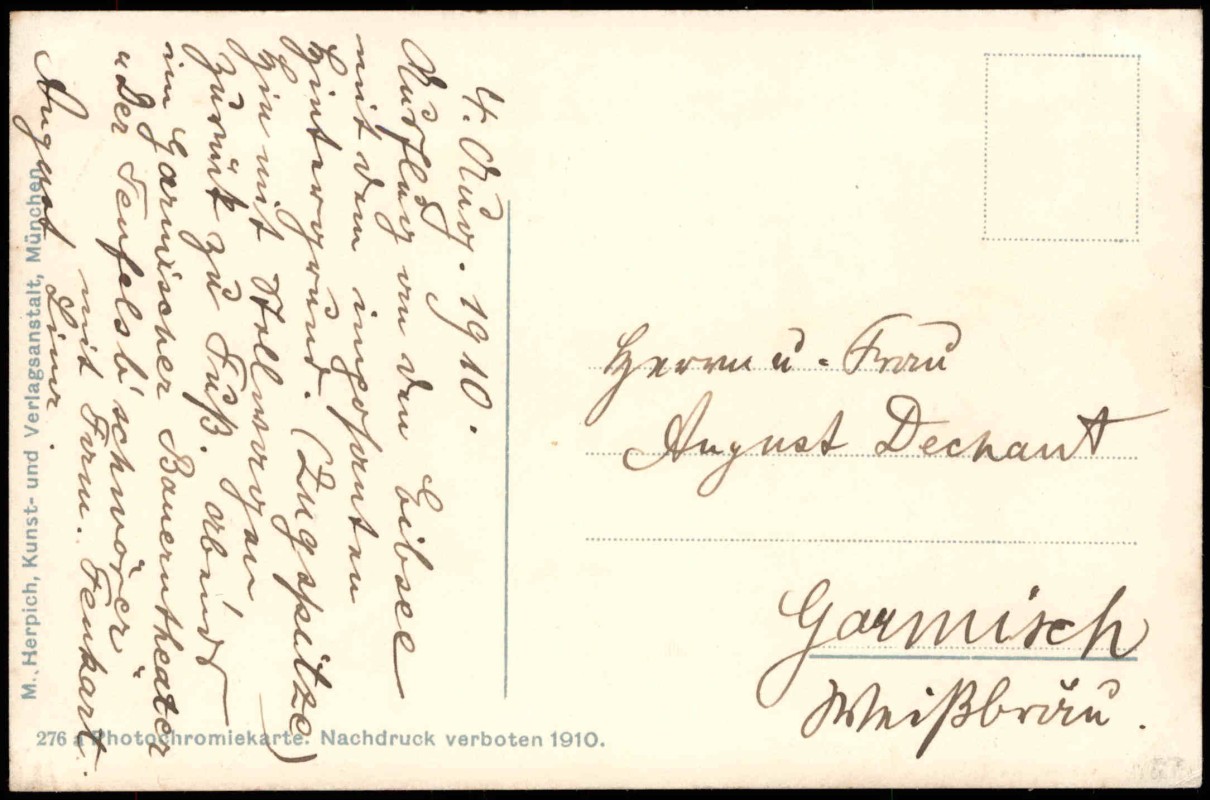 4. Aug. 1910.
Ausflug an den Eibsee
mit dem imposanten
Hintergrund. (Zugspitze)
Hin mit Stellwagen
zurück zu Fuß. abends
im Garmischer Bauerntheater
„Der Teufelsb'schwörer“
mit Fam. Fenkart.
August Lina.
Herrn u. Frau
August Dechant
Garmisch
Weißbräu.
M. Herpich, Kunst- und Verlagsanstalt, München.
276 a Photochromiekarte. Nachdruck verboten 1910.